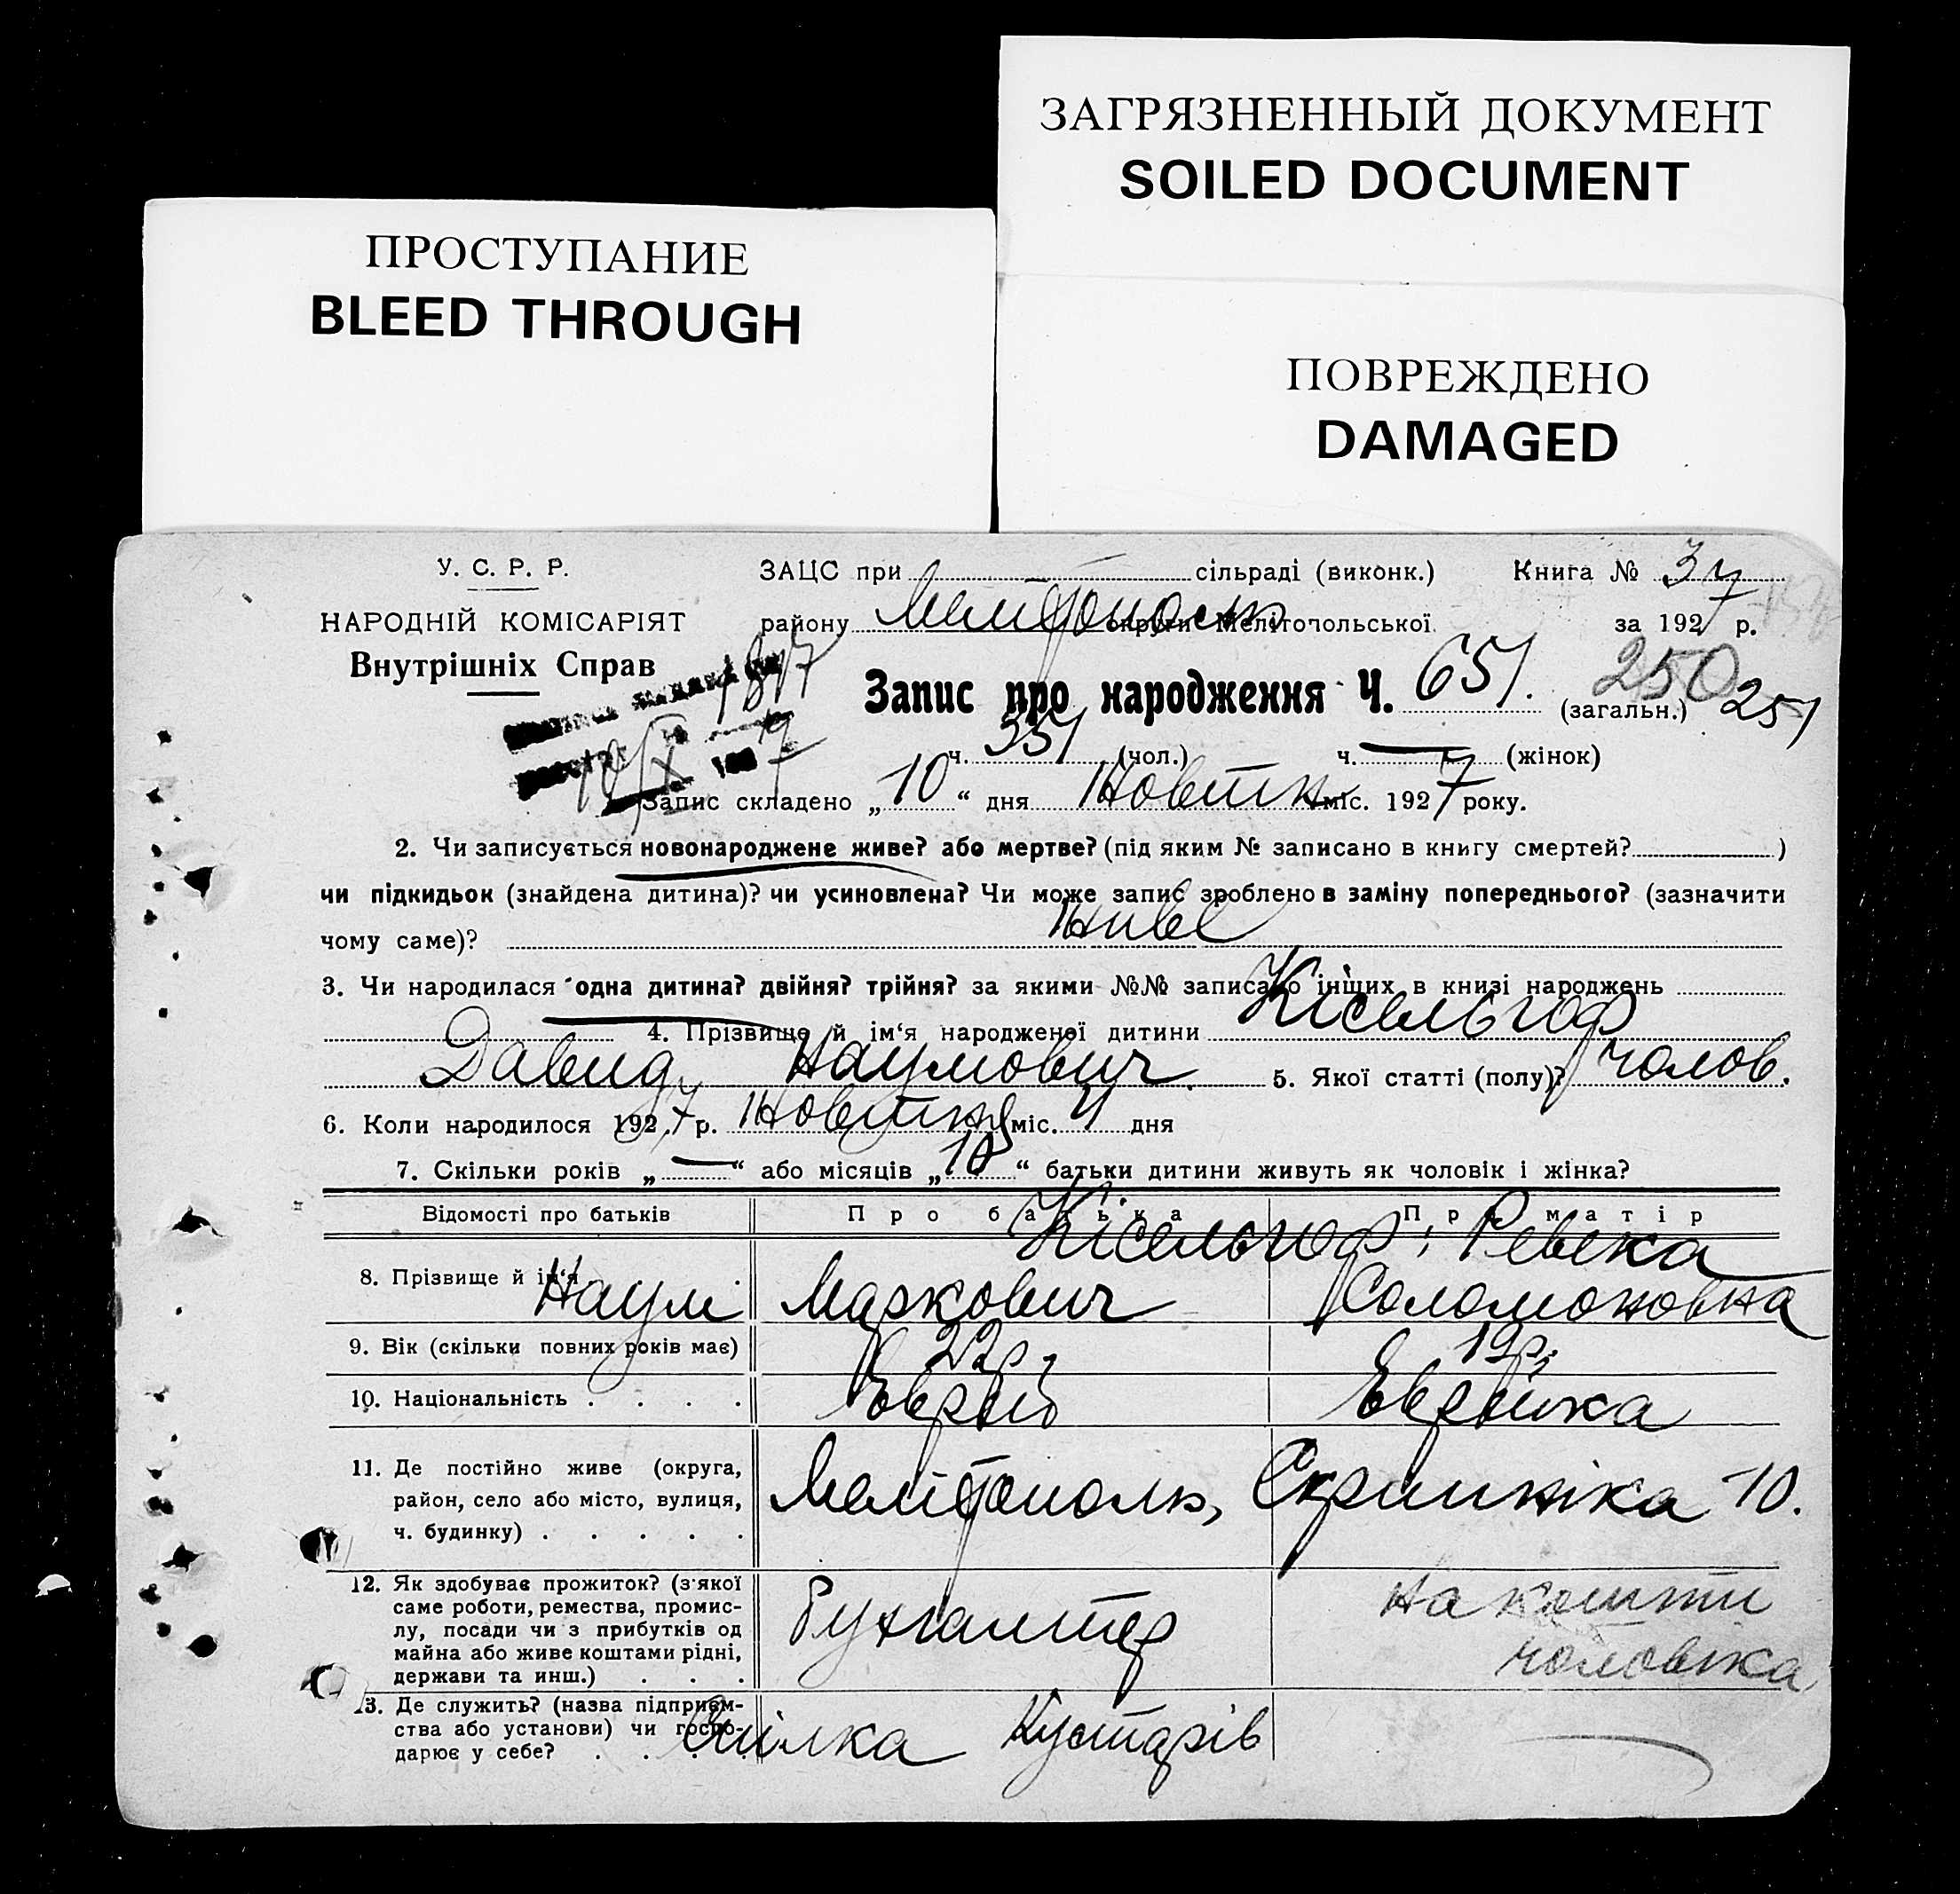 ЗАГРЯЗНЕННЫЙ ДОКУМЕНТ
SOILED DOCUMENT
ПРОСТУПАНИЕ
BLEED THROUGH
ПОВРЕЖДЕНО
DAMAGED
У. С. Р. Р.
НАРОДНІЙ КОМІСАРІЯТ
Внутрішніх Справ
ЗАЦС при сільраді (виконк.) Книга № 37
району Мелітополь округи Мелітопольської за 1927 р.
Запис про народження Ч. 651. (загальн.) 250 251
ч. 351 (чол.) ч. — (жінок)
Запис складено „10“ дня Новтня міс. 1927 року.
2. Чи записується новонароджене живе? або мертве? (під яким № записано в книгу смертей? )
чи підкидьок (знайдена дитина)? чи усиновлена? Чи може запис зроблено в заміну попереднього? (зазначити
чому саме)? Живе
3. Чи народилася одна дитина? двійня? трійня? за якими №№ записано інших в книзі народжень
4. Прізвище й ім‘я народженої дитини Кісельгоф
Давид Наумович. 5. Якої статті (полу)? чолов.
6. Коли народилося 1927 р. Жовтня міс. 4 дня
7. Скільки років „—“ або місяців „10“ батьки дитини живуть як чоловік і жінка?
Відомості про батьків Про батька Про матір
8. Прізвище й ім‘я Кісельгоф; Ревека
Наум Маркович Соломоновна
9. Вік (скільки повних років має) 22р. 19р.
10. Національність . . . . Еврей Еврейка
11. Де постійно живе (округа,
район, село або місто, вулиця,
ч. будинку) . . . . . Мелітополь, Скрипніка 10.
12. Як здобуває прожиток? (з якої
саме роботи, ремества, промис-
лу, посади чи з прибутків од
майна або живе коштами рідні,
держави та инш.) . . . Бухгалтер на кошти
чоловіка
13. Де служить? (назва підприєм-
ства або установи) чи госпо-
дарює у себе? . . . Спілка Кустарів